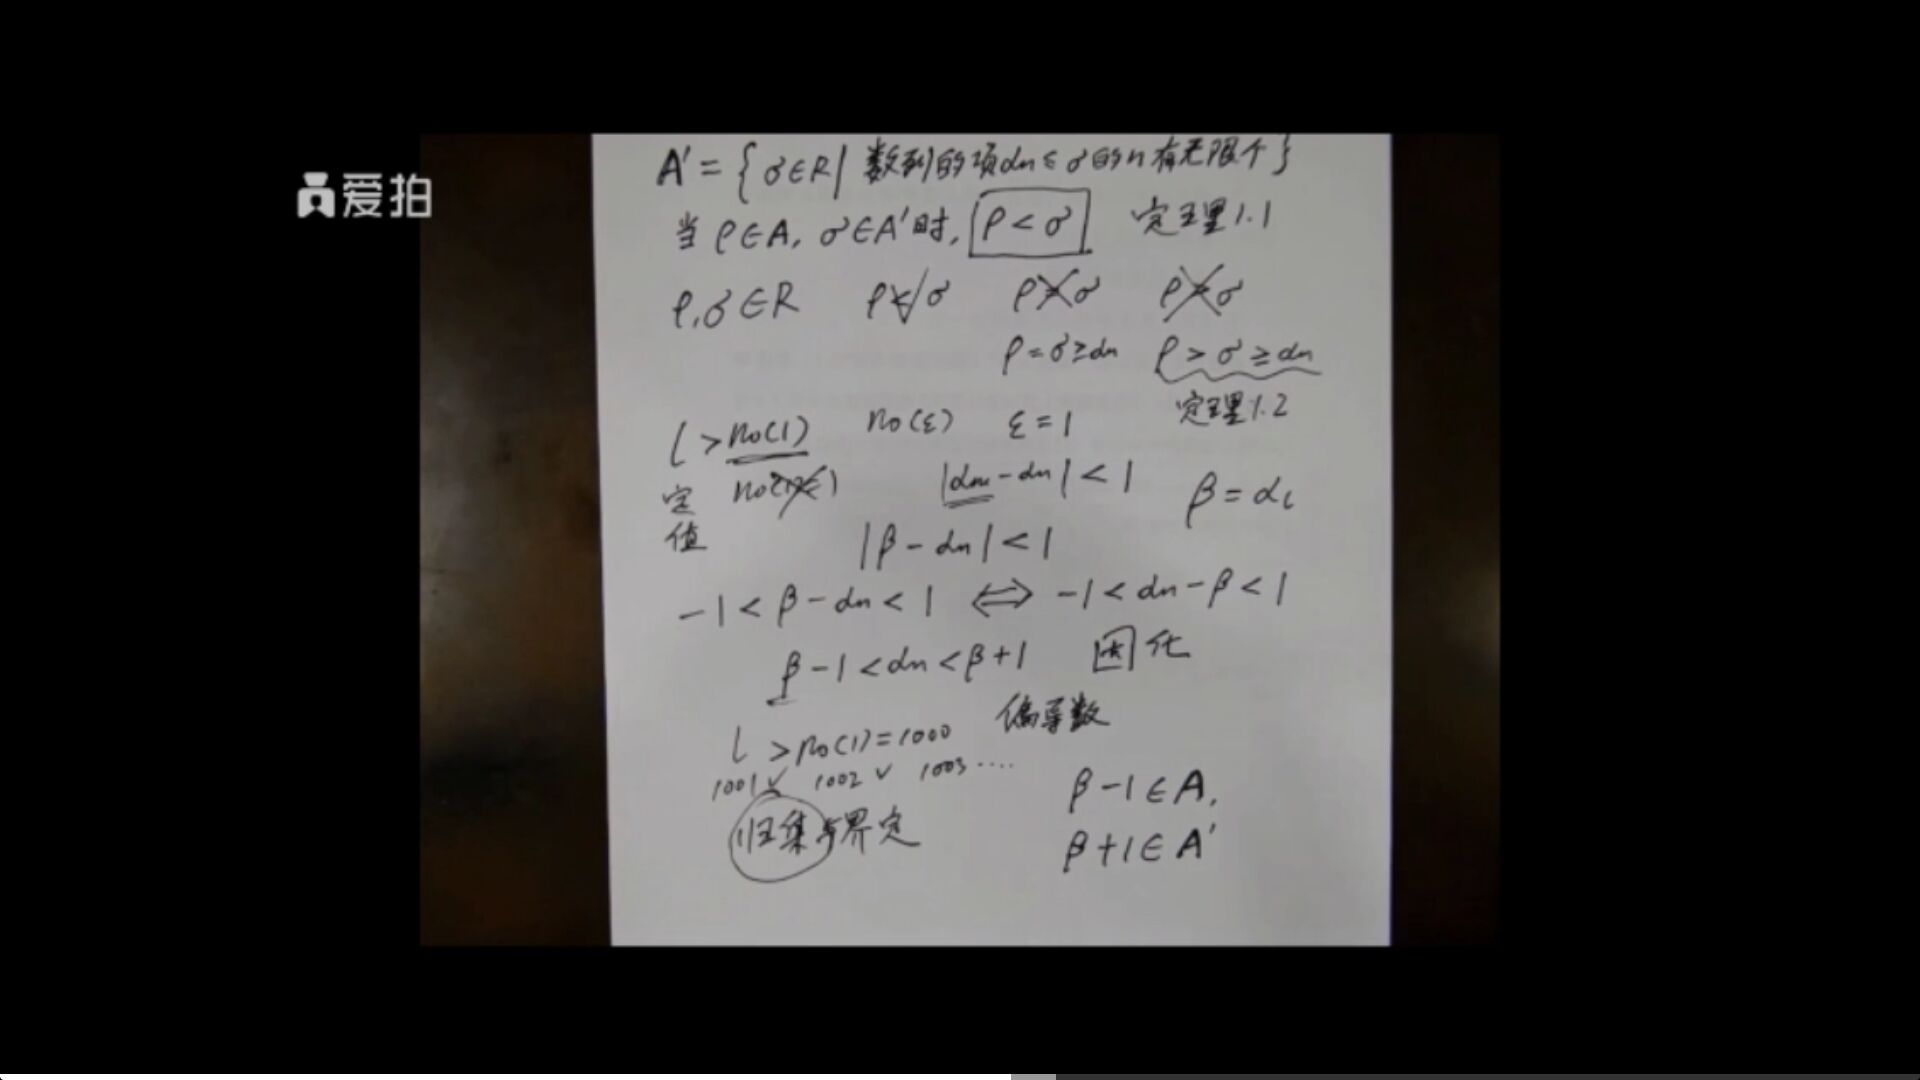 爱拍
A' = { σ∈R | 数列的项αn≤σ的n有无限个 }
当 ρ∈A, σ∈A'时, ρ < σ 定理1.1
ρ,σ∈R ρ<σ ρ=σ ρ>σ
ρ=σ≥αn ρ>σ≥αn
定理1.2
l > n0(1) n0(ε) ε=1
定值 |αm-αn| < 1 β=αl
|β-αn| < 1
-1 < β-αn < 1 ⇔ -1 < αn-β < 1
β-1 < αn < β+1 固化
偏导数
l > n0(1)=1000
1001✓ 1002✓ 1003 ····
归集与界定
β-1∈A,
β+1∈A'